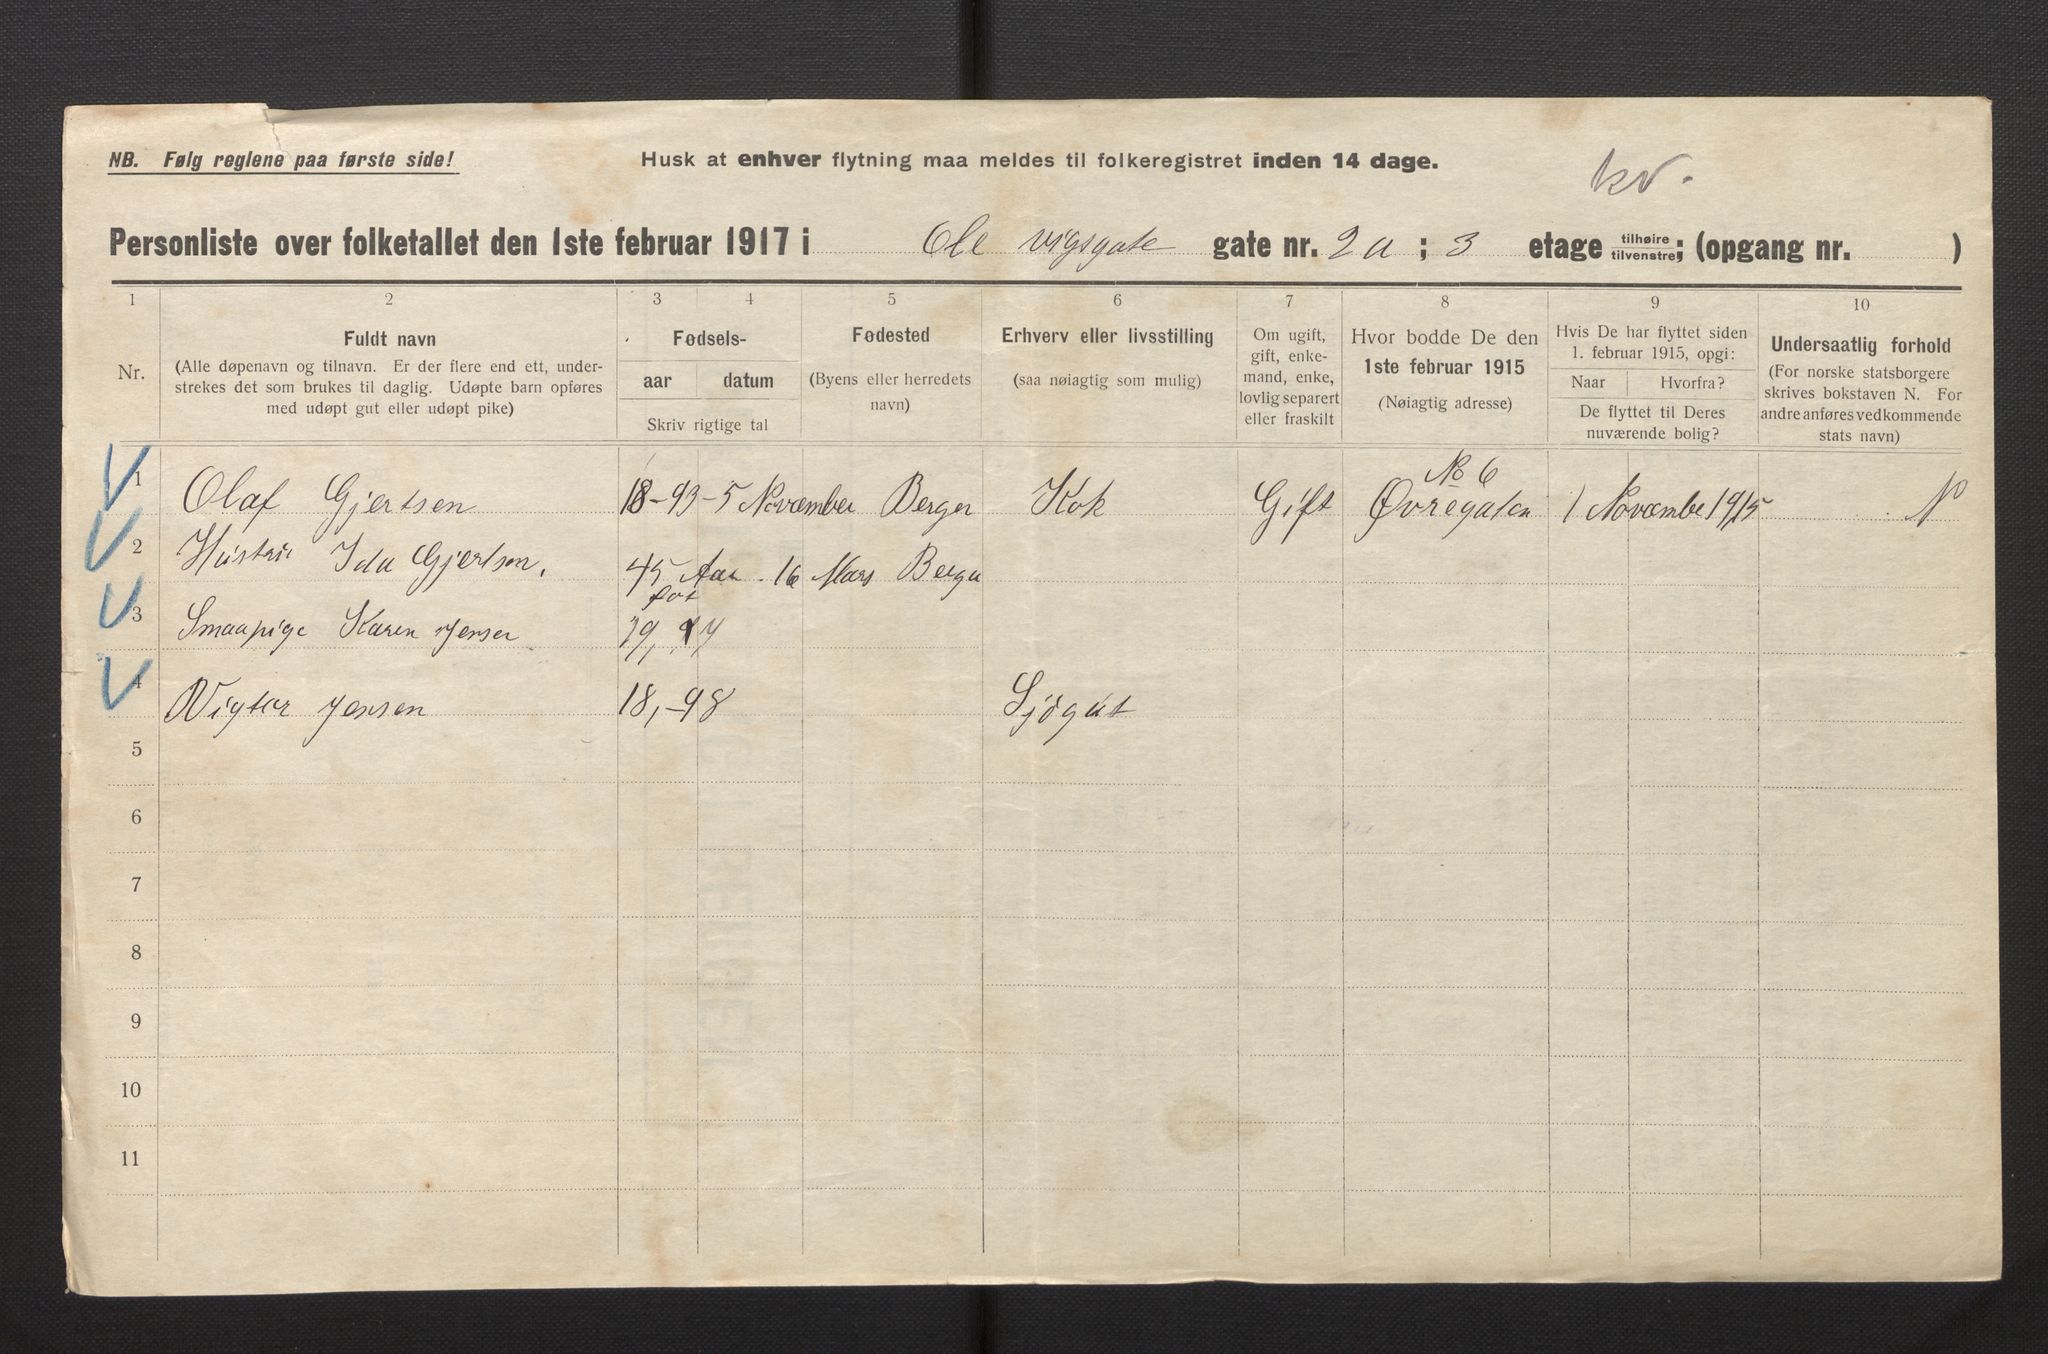 NB. Følg reglene paa første side!
Husk at enhver flytning maa meldes til folkeregistret inden 14 dage.
kv.
Personliste over folketallet den 1ste februar 1917 i Ole vigsgate gate nr. 2a ; 3 etage tilhøire/tilvenstre; (opgang nr. )
1 2 3 4 5 6 7 8 9 10
Nr.
Fuldt navn
(Alle døpenavn og tilnavn. Er der flere end ett, under-
strekes det som brukes til daglig. Udøpte barn opføres
med udøpt gut eller udøpt pike)
Fødsels-
aar datum
Skriv rigtige tal
Fødested
(Byens eller herredets
navn)
Erhverv eller livsstilling
(saa nøiagtig som mulig)
Om ugift,
gift, enke-
mand, enke,
lovlig separert
eller fraskilt
Hvor bodde De den
1ste februar 1915
(Nøiagtig adresse)
Hvis De har flyttet siden
1. februar 1915, opgi:
Naar Hvorfra?
De flyttet til Deres
nuværende bolig?
Undersaatlig forhold
(For norske statsborgere
skrives bokstaven N. For
andre anføres vedkommende
stats navn)
No 6
1 Olaf Gjertsen 18-93-5 November Bergen Kok Gift Øvregaten 1 Novembe 1915 N
2 Hustru Ida Gjertsen. 45 Aar 16 Mars Bergen
føt
3 Smaapige Karen Jensen 19, 17
4 Vigtor Jensen 18,-98 Sjøgut
5
6
7
8
9
10
11